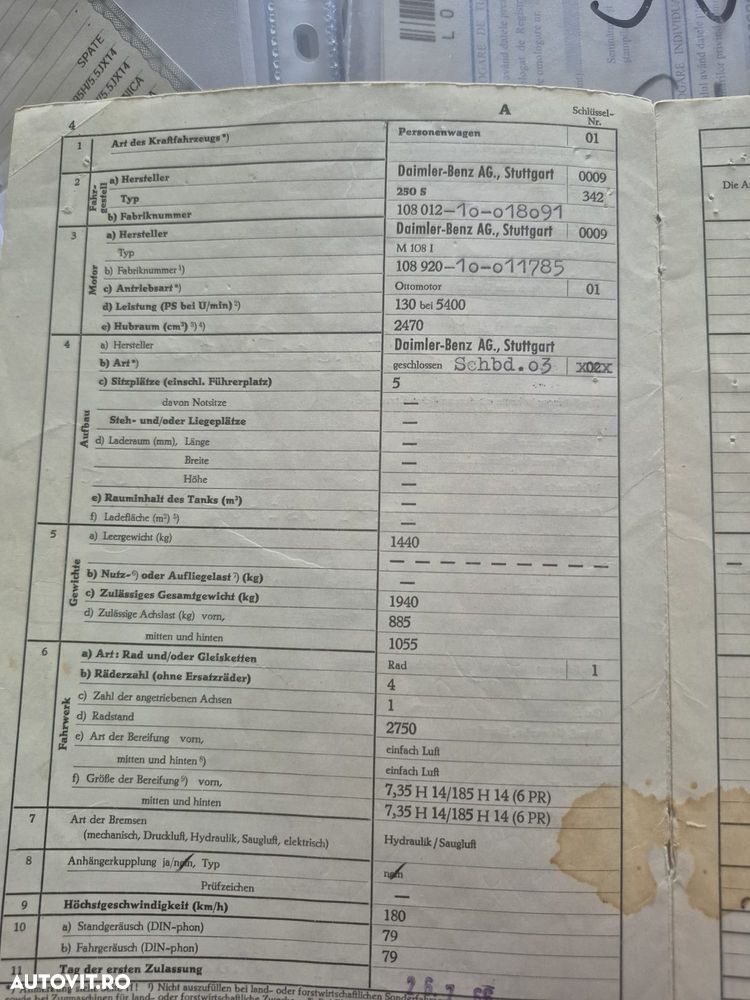 SPATE
5H/5.5JX14
H/5.5JX14"
NICA
LO
4
A
Schlüssel-
Nr.
1 Art des Kraftfahrzeugs*) Personenwagen 01
2 Fahr-gestell a) Hersteller Daimler-Benz AG., Stuttgart 0009
Typ 250 S 342
b) Fabriknummer 108 012-10-018091
3 Motor a) Hersteller Daimler-Benz AG., Stuttgart 0009
Typ M 108 I
b) Fabriknummer ¹) 108 920-10-011785
c) Antriebsart*) Ottomotor 01
d) Leistung (PS bei U/min) ²) 130 bei 5400
e) Hubraum (cm³) ³) ⁴) 2470
4 Aufbau a) Hersteller Daimler-Benz AG., Stuttgart
b) Art*) geschlossen Schbd.03 x02x
c) Sitzplätze (einschl. Führerplatz) 5
davon Notsitze —
Steh- und/oder Liegeplätze —
d) Laderaum (mm), Länge —
Breite —
Höhe —
e) Rauminhalt des Tanks (m³) —
f) Ladefläche (m²) ⁵) —
5 Gewichte a) Leergewicht (kg) 1440
— — — — — — — — — —
b) Nutz-⁶) oder Aufliegelast ⁷) (kg) —
c) Zulässiges Gesamtgewicht (kg) 1940
d) Zulässige Achslast (kg) vorn, 885
mitten und hinten 1055
6 Fahrwerk a) Art: Rad und/oder Gleisketten Rad 1
b) Räderzahl (ohne Ersatzräder) 4
c) Zahl der angetriebenen Achsen 1
d) Radstand 2750
e) Art der Bereifung vorn, einfach Luft
mitten und hinten ⁸) einfach Luft
f) Größe der Bereifung ⁹) vorn, 7,35 H 14/185 H 14 (6 PR)
mitten und hinten 7,35 H 14/185 H 14 (6 PR)
7 Art der Bremsen
(mechanisch, Druckluft, Hydraulik, Saugluft, elektrisch) Hydraulik / Saugluft
8 Anhängerkupplung ja/nein, Typ nein
Prüfzeichen —
9 Höchstgeschwindigkeit (km/h) 180
10 a) Standgeräusch (DIN-phon) 79
b) Fahrgeräusch (DIN-phon) 79
11 Tag der ersten Zulassung
¹) Nicht auszufüllen bei land- oder forstwirtschaftlichen
Die A
AUTOVIT.RO